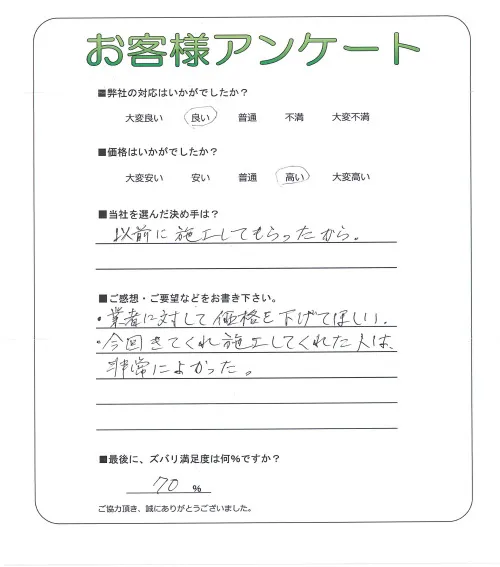 お客様アンケート
■弊社の対応はいかがでしたか？
大変良い 良い 普通 不満 大変不満
■価格はいかがでしたか？
大変安い 安い 普通 高い 大変高い
■当社を選んだ決め手は？
以前に施工してもらったから。
■ご感想・ご要望などをお書き下さい。
・業者に対して価格を下げてほしい。
・今回きてくれ施工してくれた人は、
非常によかった。
■最後に、ズバリ満足度は何％ですか？
70 %
ご協力頂き、誠にありがとうございました。